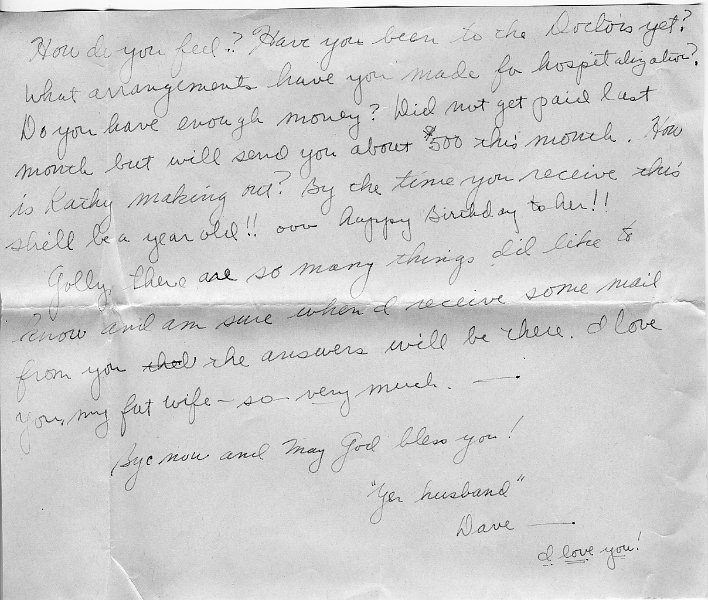 How do you feel? Have you been to the Doctors yet?
What arrangements have you made for hospitalization?
Do you have enough money? Did not get paid last
month but will send you about $500 this month. How
is Kathy making out? By the time you receive this
she'll be a year old!! ooo Happy Birthday to her!!
Golly, there are so many things I'd like to
know and am sure when I receive some mail
from you that the answers will be there. I love
you, my fat wife - so very much. —.
Bye now and may God bless you!
"Yer husband"
Dave —
I love you!